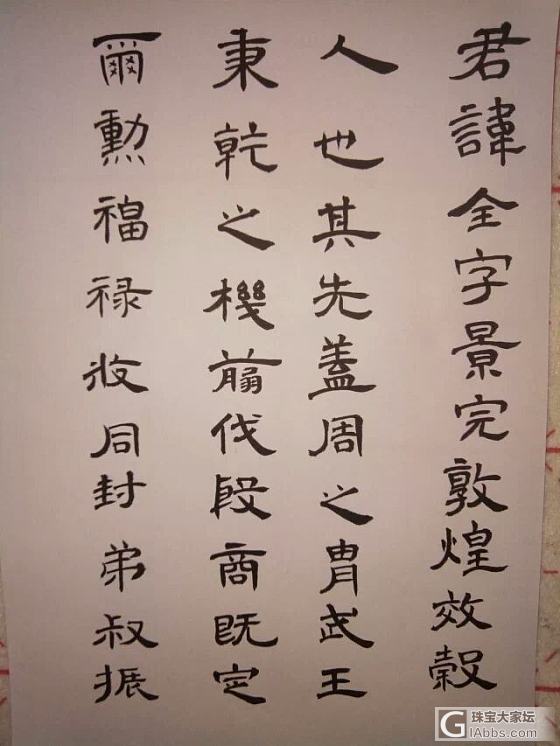 君諱全字景完敦煌效穀
人也其先蓋周之胄武王
秉乾之機翦伐殷商既定
爾勲福禄攸同封弟叔振
珠宝大家坛
GIAbbs.com